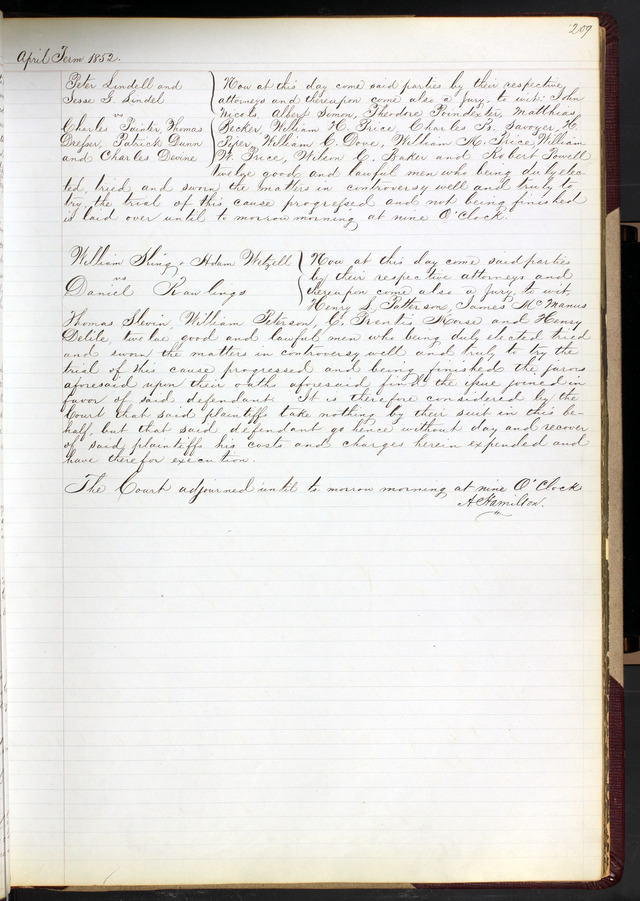 209
April Term 1852.
Peter Lindell and
Jesse G. Lindel
vs
Charles Painter, Thomas
Drepser, Patrick Dunn
and Charles Devine
Now at this day come said parties by their respective
attorneys and thereupon come also a jury, to wit: John
Nicols, Albert Simon, Theodore Poindexter, Matthias
Becker, William H. Price, Charles B. Savoyer, H.
Piper, William C. Dove, William M. Price, William
W. Price, Wilson C. Baker and Robert Powell
twelve good and lawful men who being duly elec-
ted, tried and sworn the matters in controversy well and truly to
try, the trial of this cause progressed and not being finished
is laid over until to morrow morning at nine O'Clock.
William Sling & Adam Wetzell
vs
Daniel Rawlings
Now at this day come said parties
by their respective attorneys and
thereupon come also a jury, to wit,
Henry S. Patterson, James McManus
Thomas Slevin, William Peterson, C. Prentis Morse and Henry
Delile, twelve good and lawful men who being duly elected tried
and sworn the matters in controversy well and truly to try the
trial of this cause progressed and being finished the jurors
aforesaid upon their oaths aforesaid find the issue joined in
favor of said defendant. It is therefore considered by the
Court that said plaintiff take nothing by their suit in this be-
half, but that said defendant go hence without day and recover
of said plaintiffs his costs and charges herein expended and
have therefor execution.
The Court adjourned until to morrow morning at nine O'Clock
A. Hamilton.